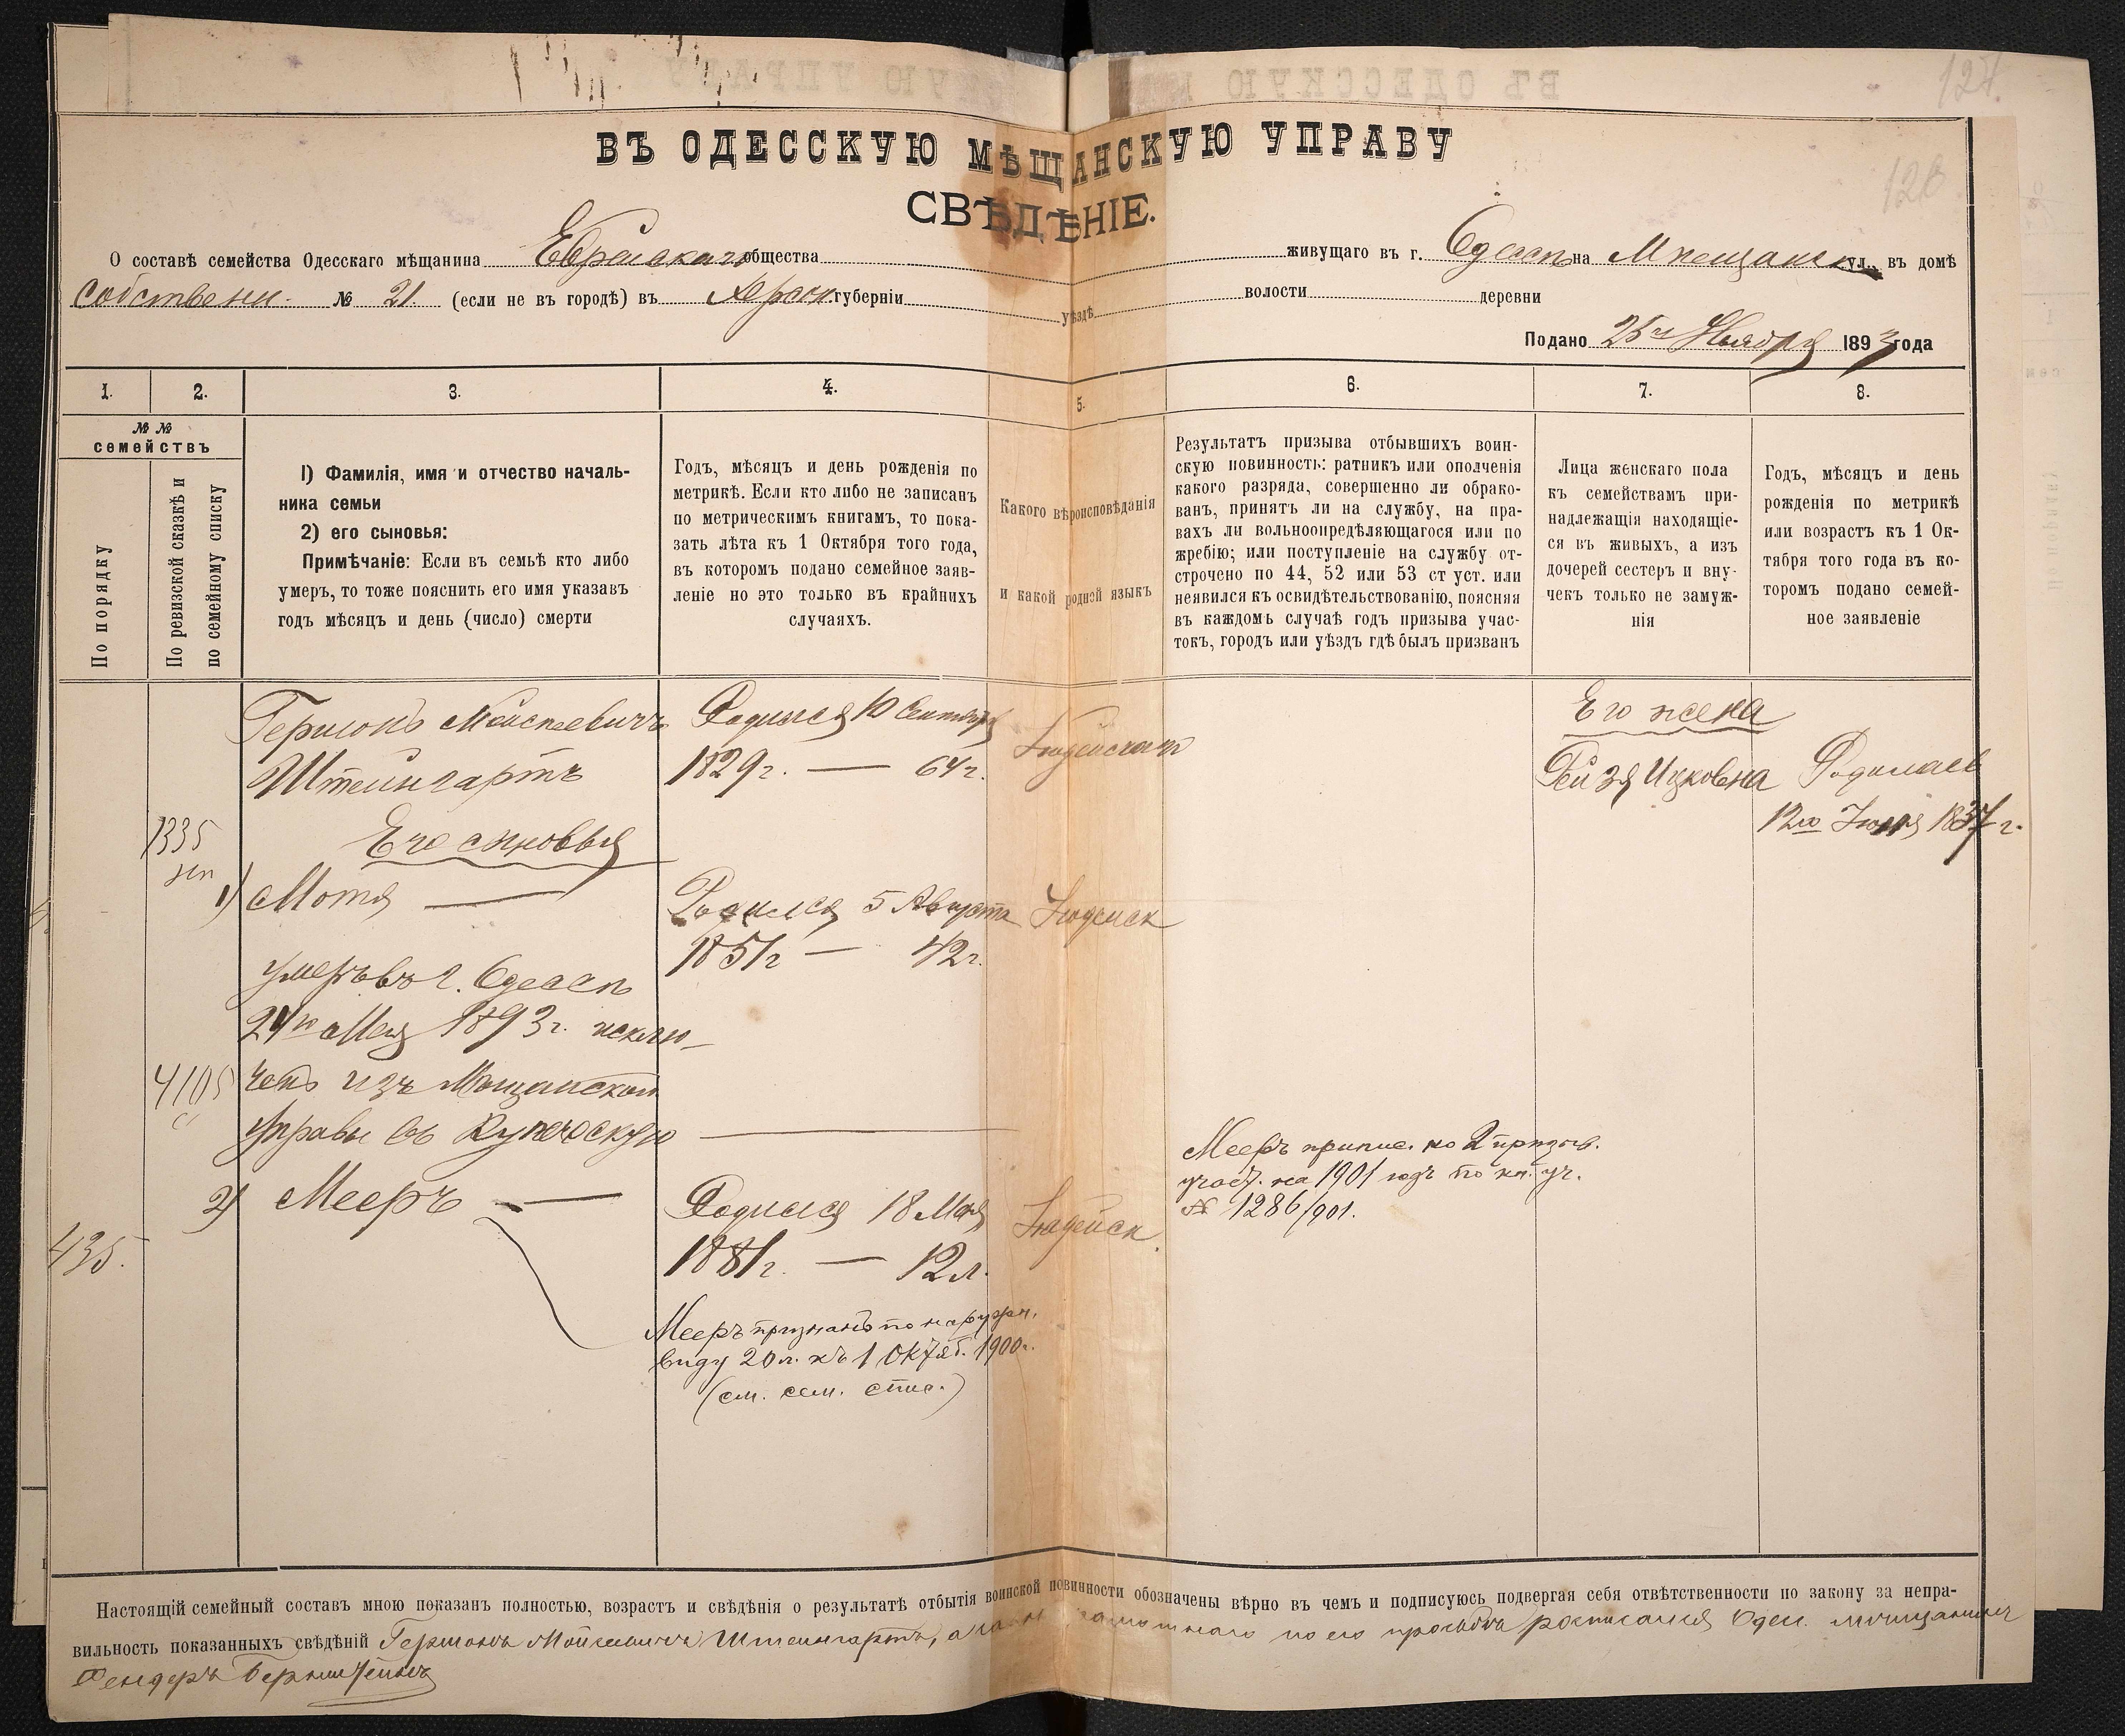 127.
ВЪ ОДЕССКУЮ МѢЩАНСКУЮ УПРАВУ
СВѢДѢНІЕ.
О составѣ семейства Одесскаго мѣщанина Еврейскаго общества живущаго въ г. Одессѣ на Мѣщанск. ул., въ домѣ
Собственн. № 21 (если не въ городѣ) въ Херсон. губерніи уѣздѣ волости деревни
Подано 25го Ноября 1893 года
1. 2. 3. 4. 5. 6. 7. 8.
№ №
семействъ
По порядку
По ревизской сказкѣ и
по семейному списку
1) Фамилія, имя и отчество началь-
ника семьи
2) его сыновья:
Примѣчаніе: Если въ семьѣ кто либо
умеръ, то тоже пояснить его имя указавъ
годъ мѣсяцъ и день (число) смерти
Годъ, мѣсяцъ и день рожденія по
метрикѣ. Если кто либо не записанъ
по метрическимъ книгамъ, то пока-
зать лѣта къ 1 Октября того года,
въ которомъ подано семейное заяв-
леніе но это только въ крайнихъ
случаяхъ.
Какого вѣроисповѣданія
и какой родной языкъ
Результатъ призыва отбывшихъ воин-
скую повинность: ратникъ или ополченія
какого разряда, совершенно ли обрако-
ванъ, принятъ ли на службу, на пра-
вахъ ли вольноопредѣляющагося или по
жребію; или поступленіе на службу от-
строчено по 44, 52 или 53 ст уст. или
неявился къ освидѣтельствованію, поясняя
въ каждомъ случаѣ годъ призыва учас-
токъ, городъ или уѣздъ гдѣ былъ призванъ
Лица женскаго пола
къ семействамъ при-
надлежащія находящіе-
ся въ живыхъ, а изъ
дочерей сестеръ и вну-
чекъ только не замуж-
нія
Годъ, мѣсяцъ и день
рожденія по метрикѣ
или возрастъ къ 1 Ок-
тября того года въ ко-
торомъ подано семей-
ное заявленіе
Гершонъ Мойсеевичъ
Штейнгартъ
Родился 10 Сентября
1829 г. — 64 г.
Іюдейскаго
Его жена
Рейзя Ицковна
Родилась
12го 1837 г.
1335
Его сыновья
1) Мотя —
Родился 5 Августа
1851 г — 42 г.
Іюдейск
умеръ въ г. Одессѣ
24го Мая 1893 г. исклю-
4105
ченъ изъ Мѣщанской
Управы въ Купеческую
2) Мееръ —
Родился 18 Мая
1881 г. — 12 л.
Іюдейск.
Мееръ припис. ко 2 призыв.
участ. на 1901 годъ по кн. уч.
№ 1286/901.
435.
Мееръ признанъ по наружн.
виду 20 л. къ 1 Октяб. 1900 г.
(см. сем. спис.)
Настоящій семейный составъ мною показанъ полностью, возрастъ и свѣдѣнія о результатѣ отбытія воинской повинности обозначены вѣрно въ чемъ и подписуюсь подвергая себя отвѣтственности по закону за непра-
вильность показанныхъ свѣдѣній Гершонъ Мойсеевичъ Штейнгартъ, а за него неграмотнаго по его просьбѣ росписался Одес. мѣщанинъ
Фендеръ Бернштейнъ